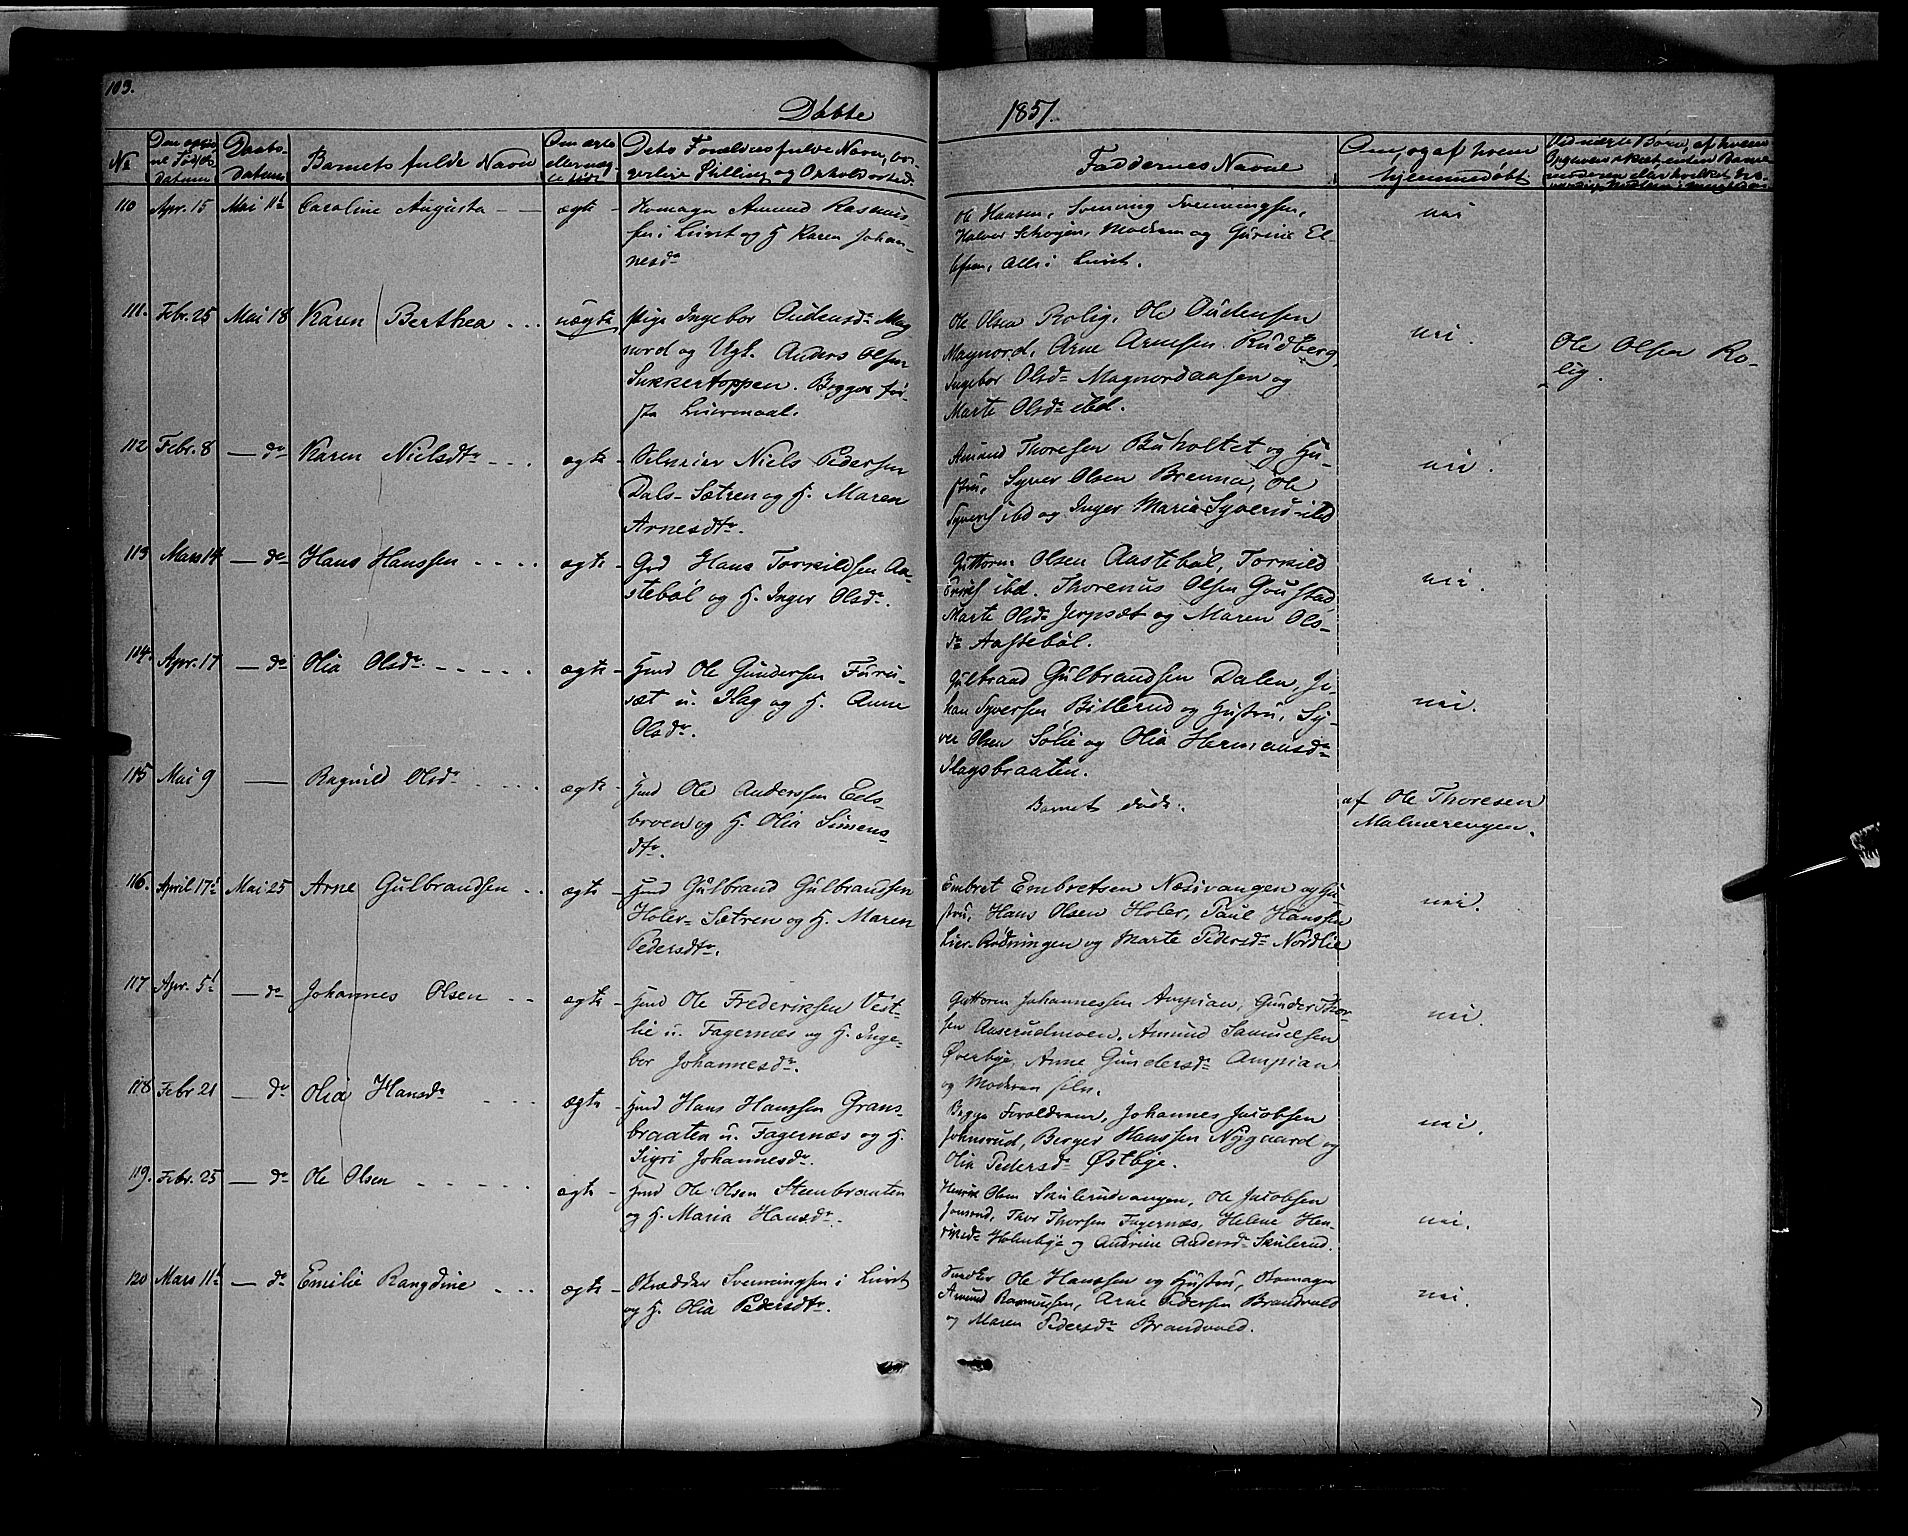 103.
Døbte
1851.
No
Datum
Daabs-
datum
Barnets fulde Navn
Om ægte
Dets Forældres fulde Navn, bor-
gerlige Stilling og Opholdssted.
Faddernes Navne
Om, og af hvem
hjemmedøbt
110 Apr. 15 Mai 11te Caroline Augusta ægte
Amund Rasmus-
sen i Liiret og H. Karen Johan-
nesdr
Ole Hansen, Svenning Svenningsen,
Halvor Schøyen, Modren og Gurine El-
Alle i Liiret.
nei
111. Febr. 25 Mai 18 Karen Berthea uægte
Pige Ingebor Audensdr Mag-
nord og Ugk. Anders Olsen
Sukkertoppen. Begges før-
ste Leiermaal.
Ole Olsen Rolig, Ole Audensen
Magnord, Arne Arnesen Rudberg,
Ingebor Olsdr Magnordaasen og
Marte Olsdr ibd.
nei.
Ole Olsen Ro-
lig.
112 Febr. 8 — do Karen Nielsdtr ægte
Selveier Niels Pedersen
Dals-Sætren og H. Maren
Arnesdtr.
Amund Thoresen Buholtet og Hu-
stru, Syver Olsen Brenna, Ole
Syvers ibd og Inger Maria Syversd ibd
nei.
113 Mars 14 — do Hans Hanssen ægte
Grd Hans Torkildsen Aa-
stebøl og H. Inger Olsdr.
Guttorm Olsen Aastebøl, Torkild
ibd. Thorenus Olsen Goustad
Marte Olsdr Jerpsæt og Maren Ols-
dr Aastebøl.
nei.
104. Apr. 17 — do Olia Olsdr. ægte
Hmd Ole Gundersen Furu-
sæt u. Slag og H. Anne
Olsdr.
Gulbrand Gulbrandsen Dalen, Jo-
han Syversen Billerud og Hustru, Sy-
ver Olsen Sølie og Olia Hermansdr
Slagsbraaten.
nei.
115 Mai 9 — Ragnild Olsdr ægte
Hmd Ole Anderssen Eds-
broen og H. Olia Simens-
dtr.
Barnet døde.
af Ole Thoresen
Malmerengen.
116. April 17de Mai 25 Arne Gulbrandsen ægte
Hmd Gulbrand Gulbrandsen
Holer-Sætren og H. Maren
Pedersdtr.
Embret Embretsen Næsivangen og Hu-
stru, Hans Olsen Holer, Paul Hanssen
Lier-Rødningen og Marte Pedersdr Nordlie
nei.
117 Apr. 5te — do Johannes Olsen ægte
Hmd Ole Frederiksen Vest-
lie u. Fagernæs og H. Inge-
bor Johannesdr.
Guttorm Johannessen Ampian, Gunder Thor-
sen Aaserudmoen, Amund Samuelsen
Øverbye, Anne Gundersdr Ampian
og Moderen selv.
nei.
118 Febr 21 — do Olia Hansdr ægte
Hmd Hans Hanssen Grans-
braaten u. Fagernæs og H.
Sigri Johannesdr.
Begge Forældrene, Johannes Jacobsen
Johnsrud, Berger Hanssen Nygaard og
Olia Pedersdr Østbye.
nei.
119. Febr. 25 — do Ole Olsen ægte
Hmd Ole Olsen Steenbraaten
og H. Maria Hansdr.
Henrik Olsen Skulerudvangen, Ole Jacobsen
Jonsrud, Thor Thorsen Fagernæs, Helene Hen-
riksdr Holmbye og Andrine Andersdr Skulerud.
nei.
120 Mars 11te — do Emilie Rangdine ægte
Skrædder Svenningsen i Liiret
og H. Olia Pedersdtr.
Snedker Ole Hanssen og Hustru,
Amund Rasmussen, Arne Pedersen Brandvold
og Maren Pedersdr Brandvold.
nei.